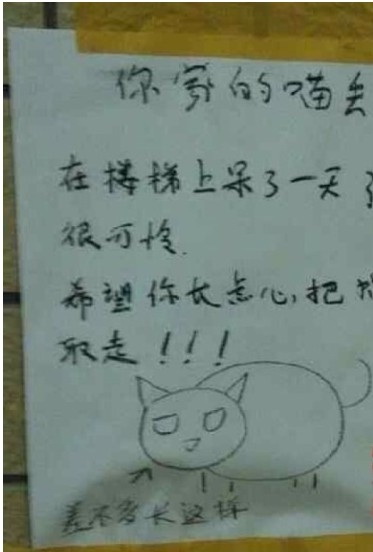 你家的喵丢
在楼梯上呆了一天了
很可怜.
希望你长点心,把
取走!!!
差不多长这样